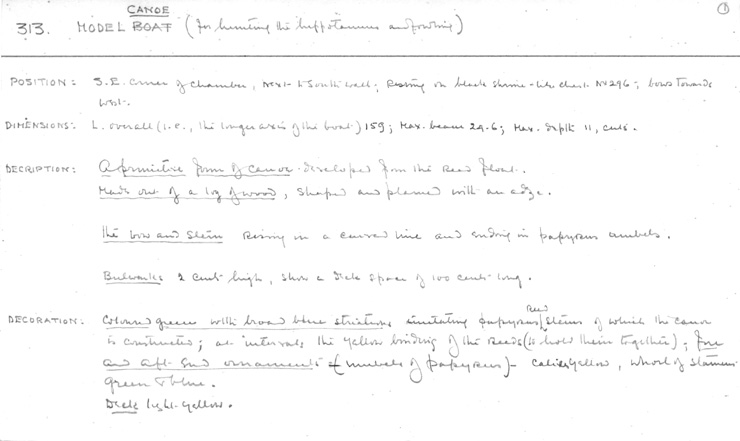 ①
CANOE
313. MODEL BOAT (for hunting the hippopotamus and fowling)
POSITION: S.E. corner of chamber, next to South wall; Resting on black shrine-like chest No 296; bows towards
west.
DIMENSIONS: L. overall (i.e., the longer axis of the boat) 159; Max. beam 29.6; Max. depth 11, cents.
DECRIPTION: A primitive form of canoe developed from the reed float.
Made out of a log of wood, shaped and planed with an adze.
The bow and stern Rising in a curved line and ending in papyrus umbels.
Bulwarks 2 cent high, show a deck space of 100 cents long.
DECORATION: Coloured green with broad blue striations imitating papyrus Reed stems of which the canoe
is constructed; at intervals the yellow binding of the reeds (to hold them together); fore
and aft end ornaments (umbels of papyrus) - calices yellow, whorl of stamens
green & blue.
Deck light-yellow.